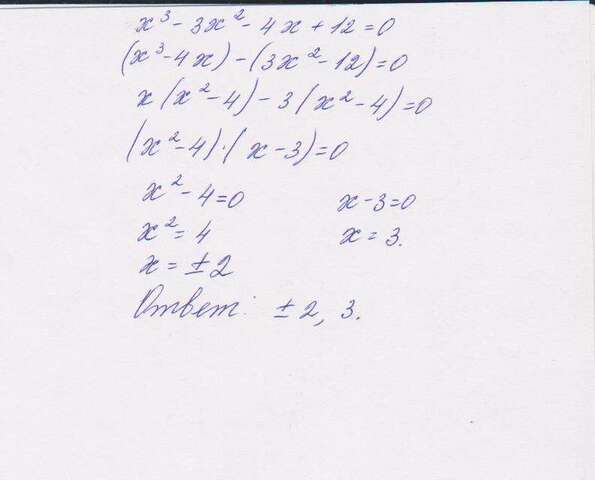 x³ - 3x² - 4x + 12 = 0
(x³ - 4x) - (3x² - 12) = 0
x(x² - 4) - 3(x² - 4) = 0
(x² - 4)·(x - 3) = 0
x² - 4 = 0 x - 3 = 0
x² = 4 x = 3.
x = ±2
Ответ: ±2, 3.